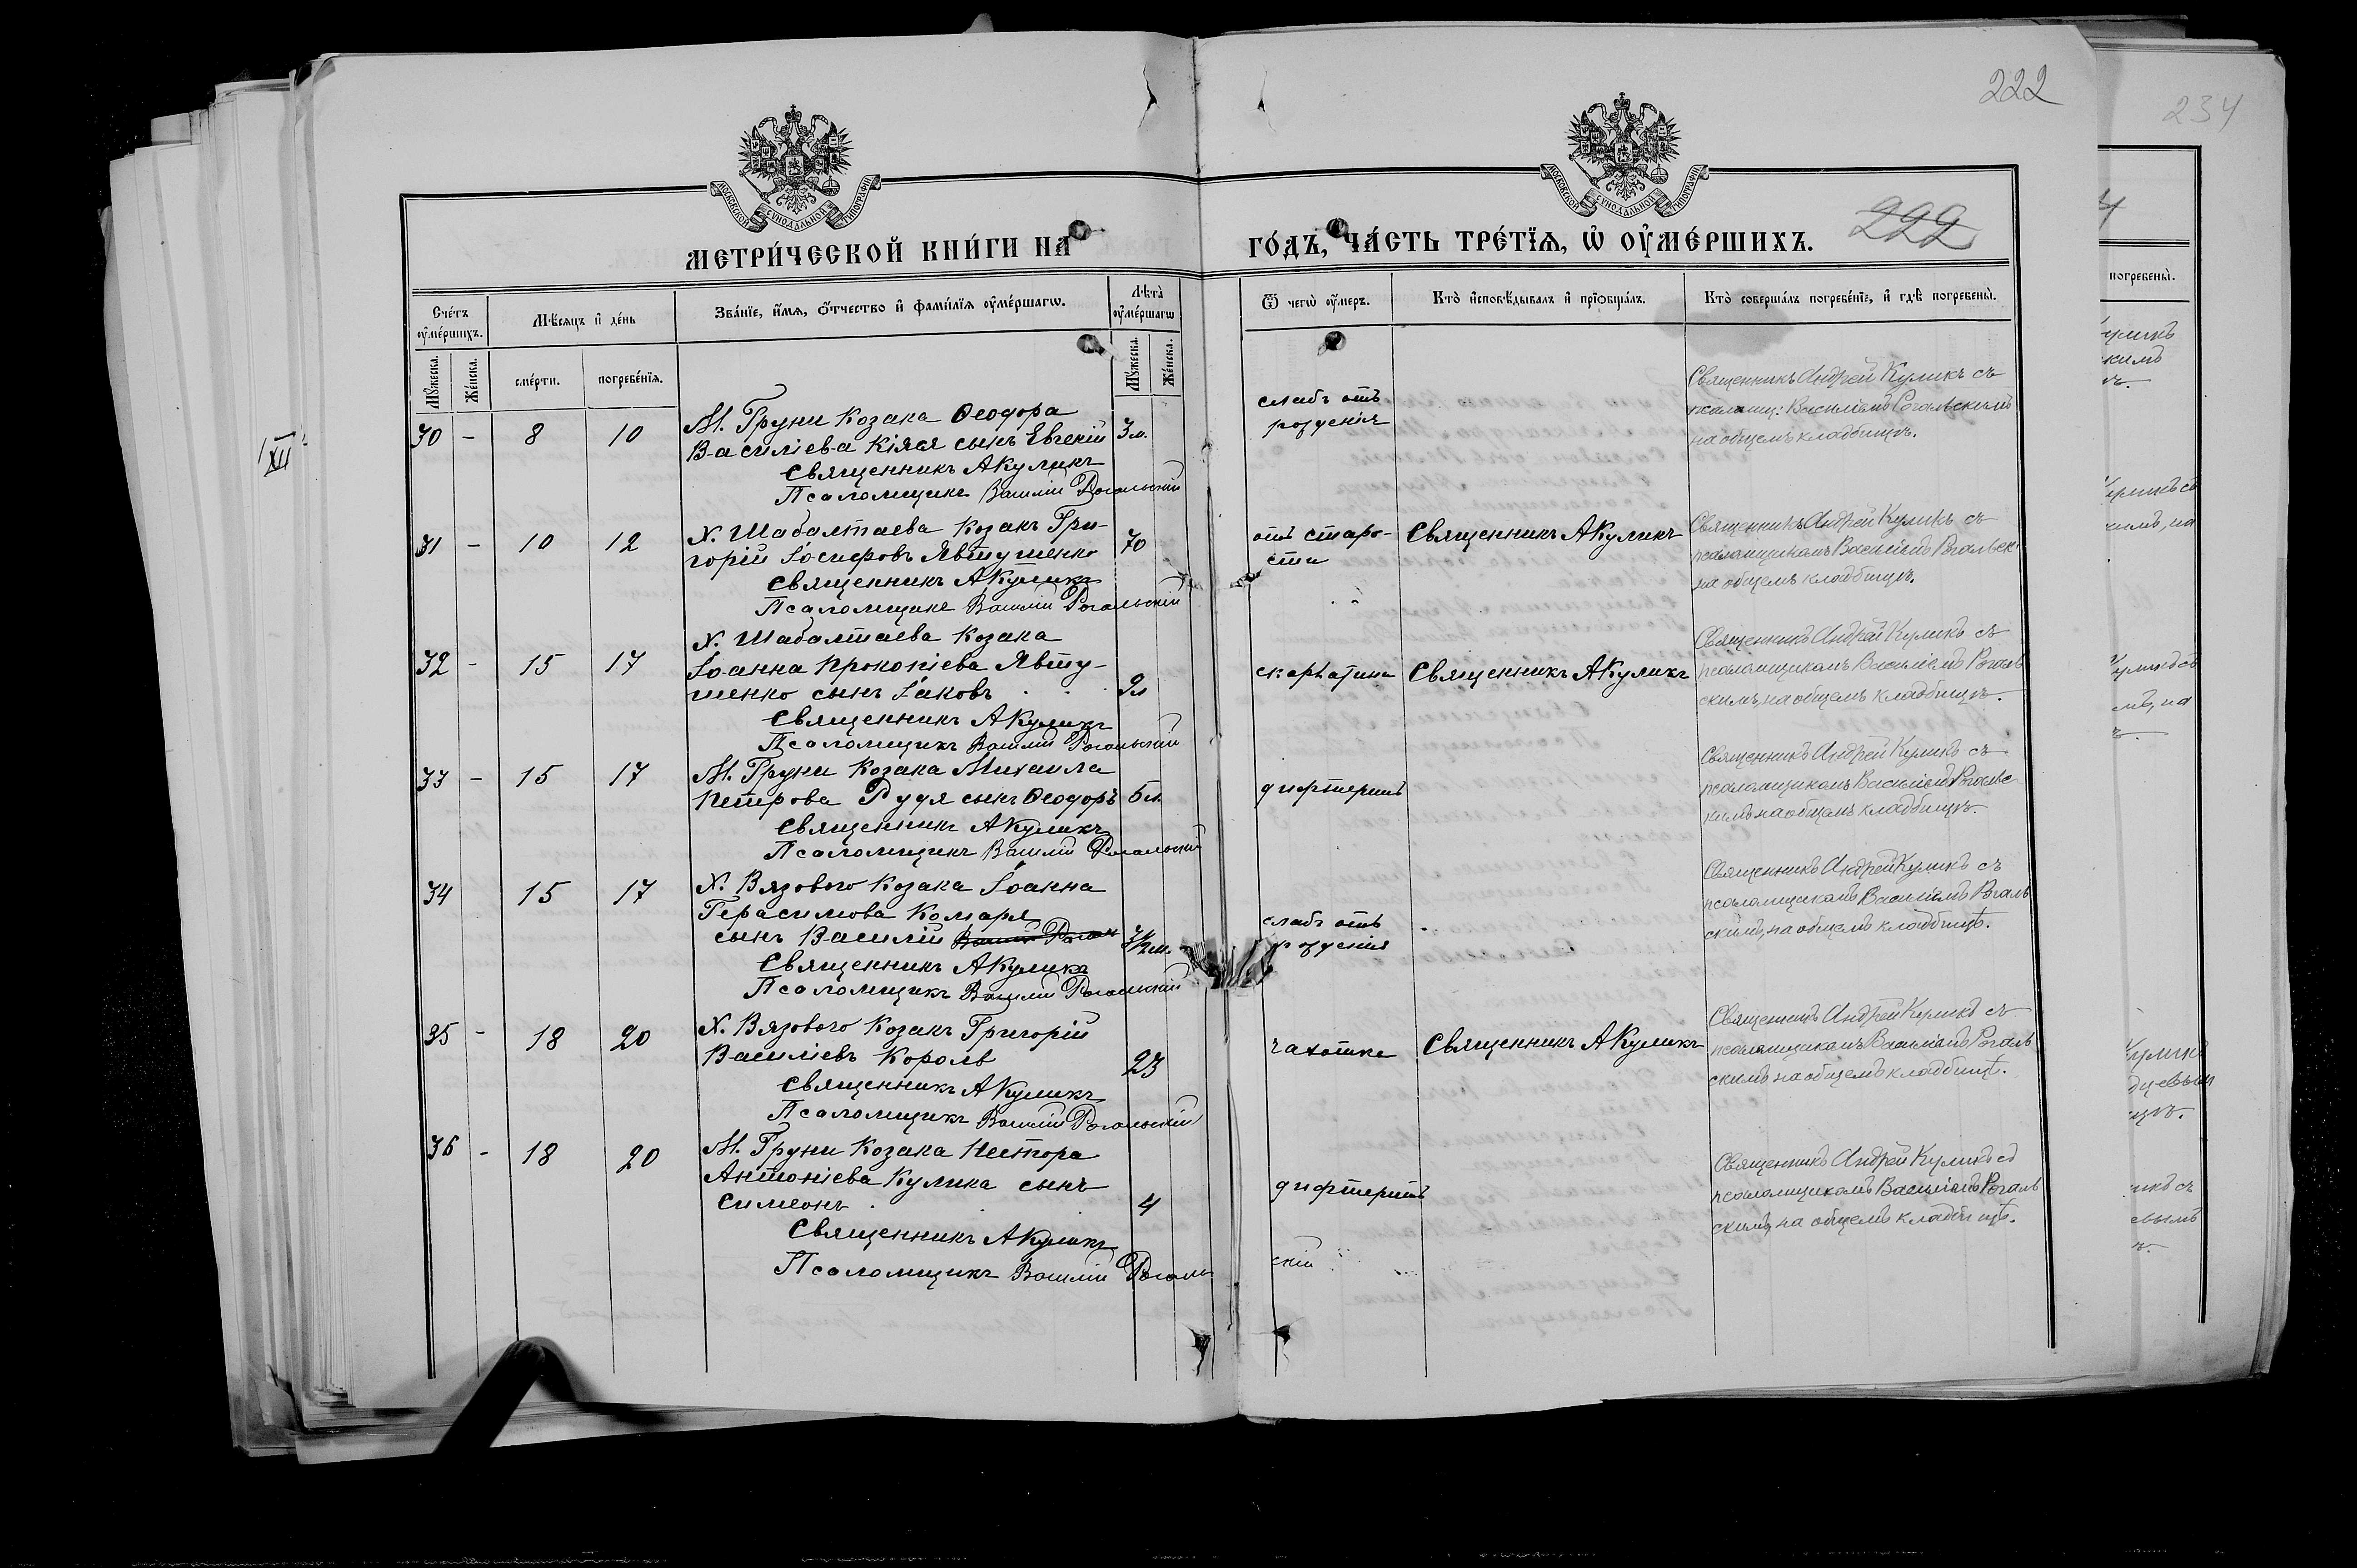 222
234
МОСКОВСКОЙ СѴНОДАЛЬНОЙ ТИПОГРАФІИ
МОСКОВСКОЙ СѴНОДАЛЬНОЙ ТИПОГРАФІИ
МЕТРИ́ЧЕСКОЙ КНИ́ГИ НА
ГО́ДЪ, ЧА́СТЬ ТРЕ́ТЇѦ, Ѡ҆ ОУ҆МЕ́РШИХЪ.
222
Сче́тъ оу҆ме́ршихъ.
Мѣ́сѧцъ и҆ де́нь
Зва́нїе, и҆́мѧ, ѻ҆́тчество и҆ фами́лїѧ оу҆ме́ршагѡ.
Лѣ́та̀ оу҆ме́ршагѡ
Ѿ чегѡ̀ оу҆́меръ.
Кто̀ и҆сповѣ́дывалъ и҆ прїѻбща́лъ.
Кто̀ соверша́лъ погребе́нїе, и҆ гдѣ̀ погребены̀.
Мꙋ́жеска.
Же́нска.
сме́рти.
погребе́нїѧ.
Мꙋ́жеска.
Же́нска.
XII
30 - 8 10
М. Груни Козака Ѳеодора
Василіева Кіяся сынъ Евгеній 3 м.
Священникъ АКуликъ
Псаломщикъ Василій Рогальскій
слабъ отъ
рожденія
Священникъ Андрей Куликъ съ
псаломщ: Василіемъ Рогальскимъ
на общемъ кладбищѣ.
31 - 10 12
Х. Шабалтаева Козакъ Гри-
горій Іосифовъ Явтушенко 70
Священникъ АКуликъ
Псаломщикъ Василій Рогальскій
отъ старо-
сти
Священникъ АКуликъ
Священникъ Андрей Куликъ съ
псаломщикомъ Василіемъ Рогальск.
на общемъ кладбищѣ.
32 - 15 17
Х. Шабалтаева Козака
Іоанна Прокопіева Явту-
шенко сынъ Іаковъ 9л
Священникъ АКуликъ
Псаломщикъ Василій Рогальскій
скарлатина
Священникъ АКуликъ
Священникъ Андрей Куликъ съ
псаломщикомъ Василіемъ Рогаль
скимъ, на общемъ кладбищѣ.
33 - 15 17
М. Груни Козака Михаила
Петрова Рудя сынъ Ѳеодоръ 6 л.
Священникъ АКуликъ
Псаломщикъ Василій Рогальскій
дифтеритъ
Священникъ Андрей Куликъ съ
псаломщикомъ Василіемъ Рогальс
кимъ на общемъ кладбищѣ.
34 15 17
Х. Вязового Козака Іоанна
Герасимова Комаря
сынъ Василій
Священникъ АКуликъ
Псаломщикъ Василій Рогальскій
слабъ отъ
рожденія
Священникъ Андрей Куликъ съ
псаломщикомъ Василіемъ Рогаль
скимъ, на общемъ кладбищѣ.
35 - 18 20
Х. Вязового Козакъ Григорій
Василіевъ Король 23
Священникъ АКуликъ
Псаломщикъ Василій Рогальскій
чахотке
Священникъ АКуликъ
Священникъ Андрей Куликъ съ
псаломщикомъ Василіемъ Рогаль
скимъ на общемъ кладбищѣ.
36 - 18 20
М. Груни Козака Нестора
Антоніева Кулика сынъ
Симеонъ 4
Священникъ АКуликъ
Псаломщикъ Василій Рогаль
скій
дифтеритъ
Священникъ Андрей Куликъ съ
псаломщикомъ Василіемъ Рогаль
скимъ, на общемъ кладбищѣ.
погребены̀.